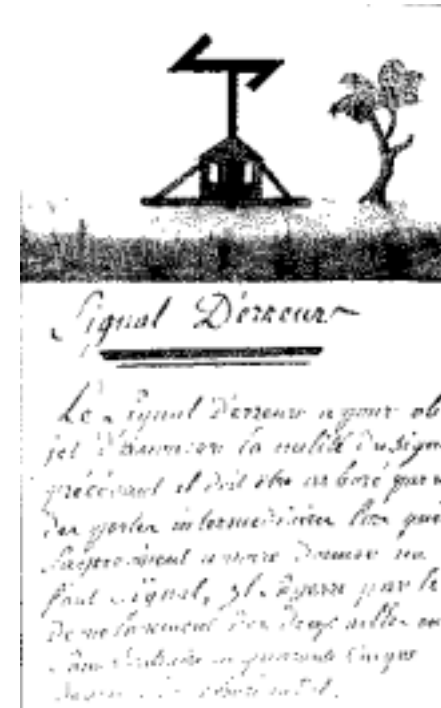 Signal D'erreur
Le Signal D'erreur a pour ob
jet D'annoncer la nullité du sign
précédent il doit être arboré par u
des postes intermédiaires lors que
S'apercoivent avoir donner un
faux Signal, Il s'opere par le
Des deux ailes en
quarante Cinque